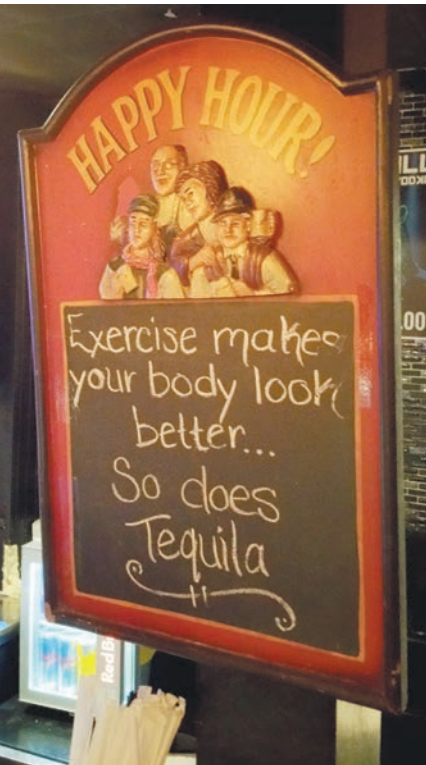 HAPPY HOUR!
Exercise makes
your body look
better...
So does
Tequila
Red B
.00